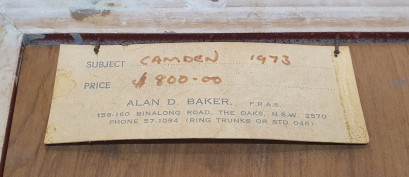 SUBJECT CAMDEN 1973
PRICE $800.00
ALAN D. BAKER, F.R.A.S.
158-160 BINALONG ROAD, THE OAKS, N.S.W. 2570
PHONE 57-1094 (RING TRUNKS OR STD 046)